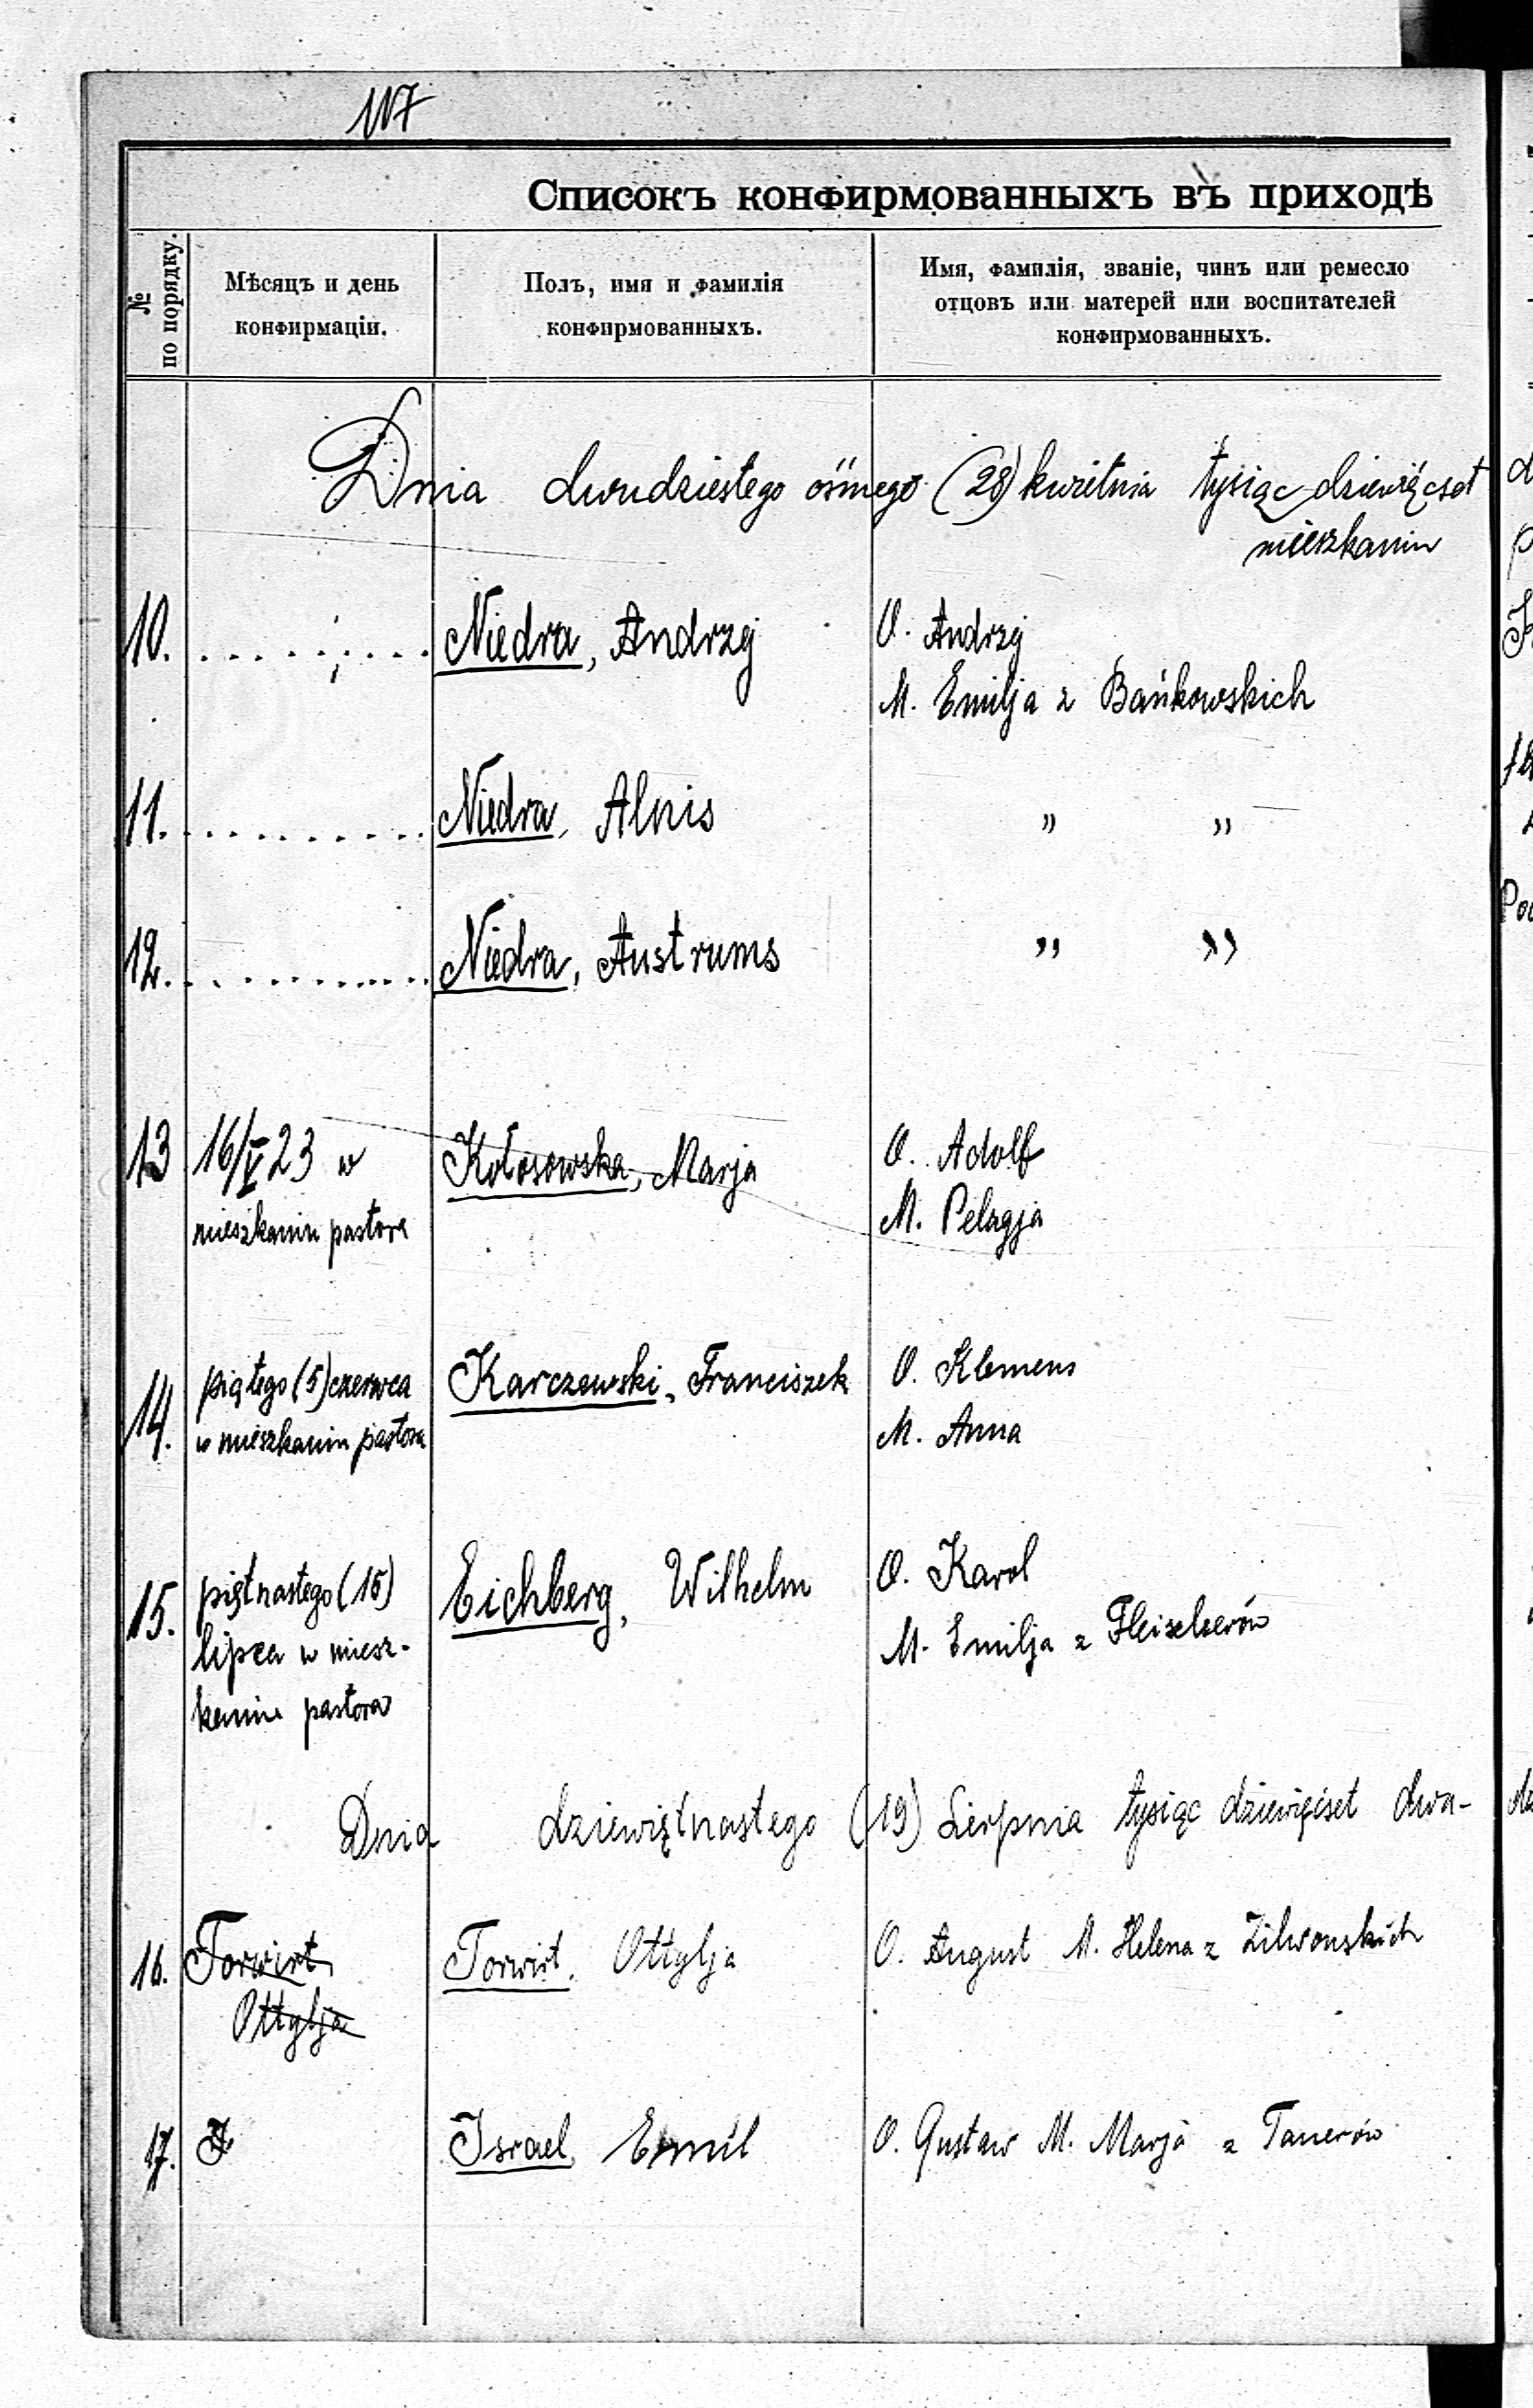 117
Списокъ конфирмованныхъ въ приходѣ
№ по порядку.
Мѣсяцъ и день
конфирмаціи.
Полъ, имя и фамилія
конфирмованныхъ.
Имя, фамилія, званіе, чинъ или ремесло
отцовъ или матерей или воспитателей
конфирмованныхъ.
Dnia dwudziestego ósmego (28) kwietnia tysiąc dziewięćset
mieszkaniu
10. Niedra, Andrzej O. Andrzej
M. Emilja z Bańkowskich
11. Niedra, Alnis " "
12. Niedra, Austrums " "
13 16/V 23 w Kołosowska, Marja O. Adolf
mieszkaniu pastora M. Pelagja
14. piątego (5) czerwca Karczewski, Franciszek O. Klemens
w mieszkaniu pastora M. Anna
15. piętnastego (15) Eichberg, Wilhelm O. Karol
lipca w miesz- M. Emilja z
kaniu pastora
Dnia dziewiętnastego (19) Sierpnia tysiąc dziewięćset dwa-
16. Torwirt Torwirt, Ottylja O. August M. Helena z
Ottylja
17. Israel, Emil O. Gustaw M. Marja z Tanerów